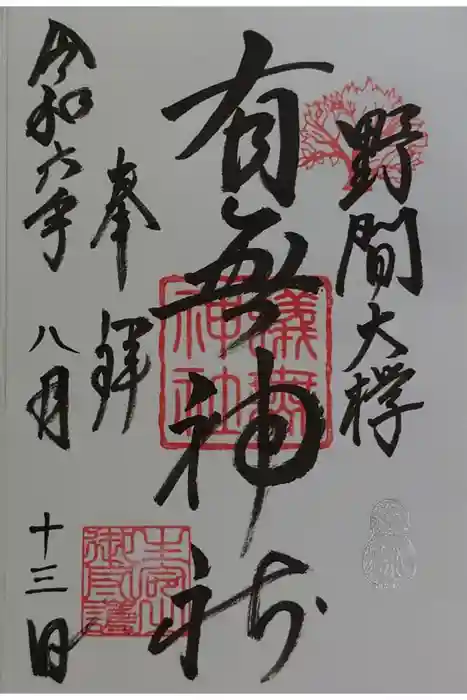 野間大欅
有無神社
蟻無神社
奉拝
令和六年八月十三日